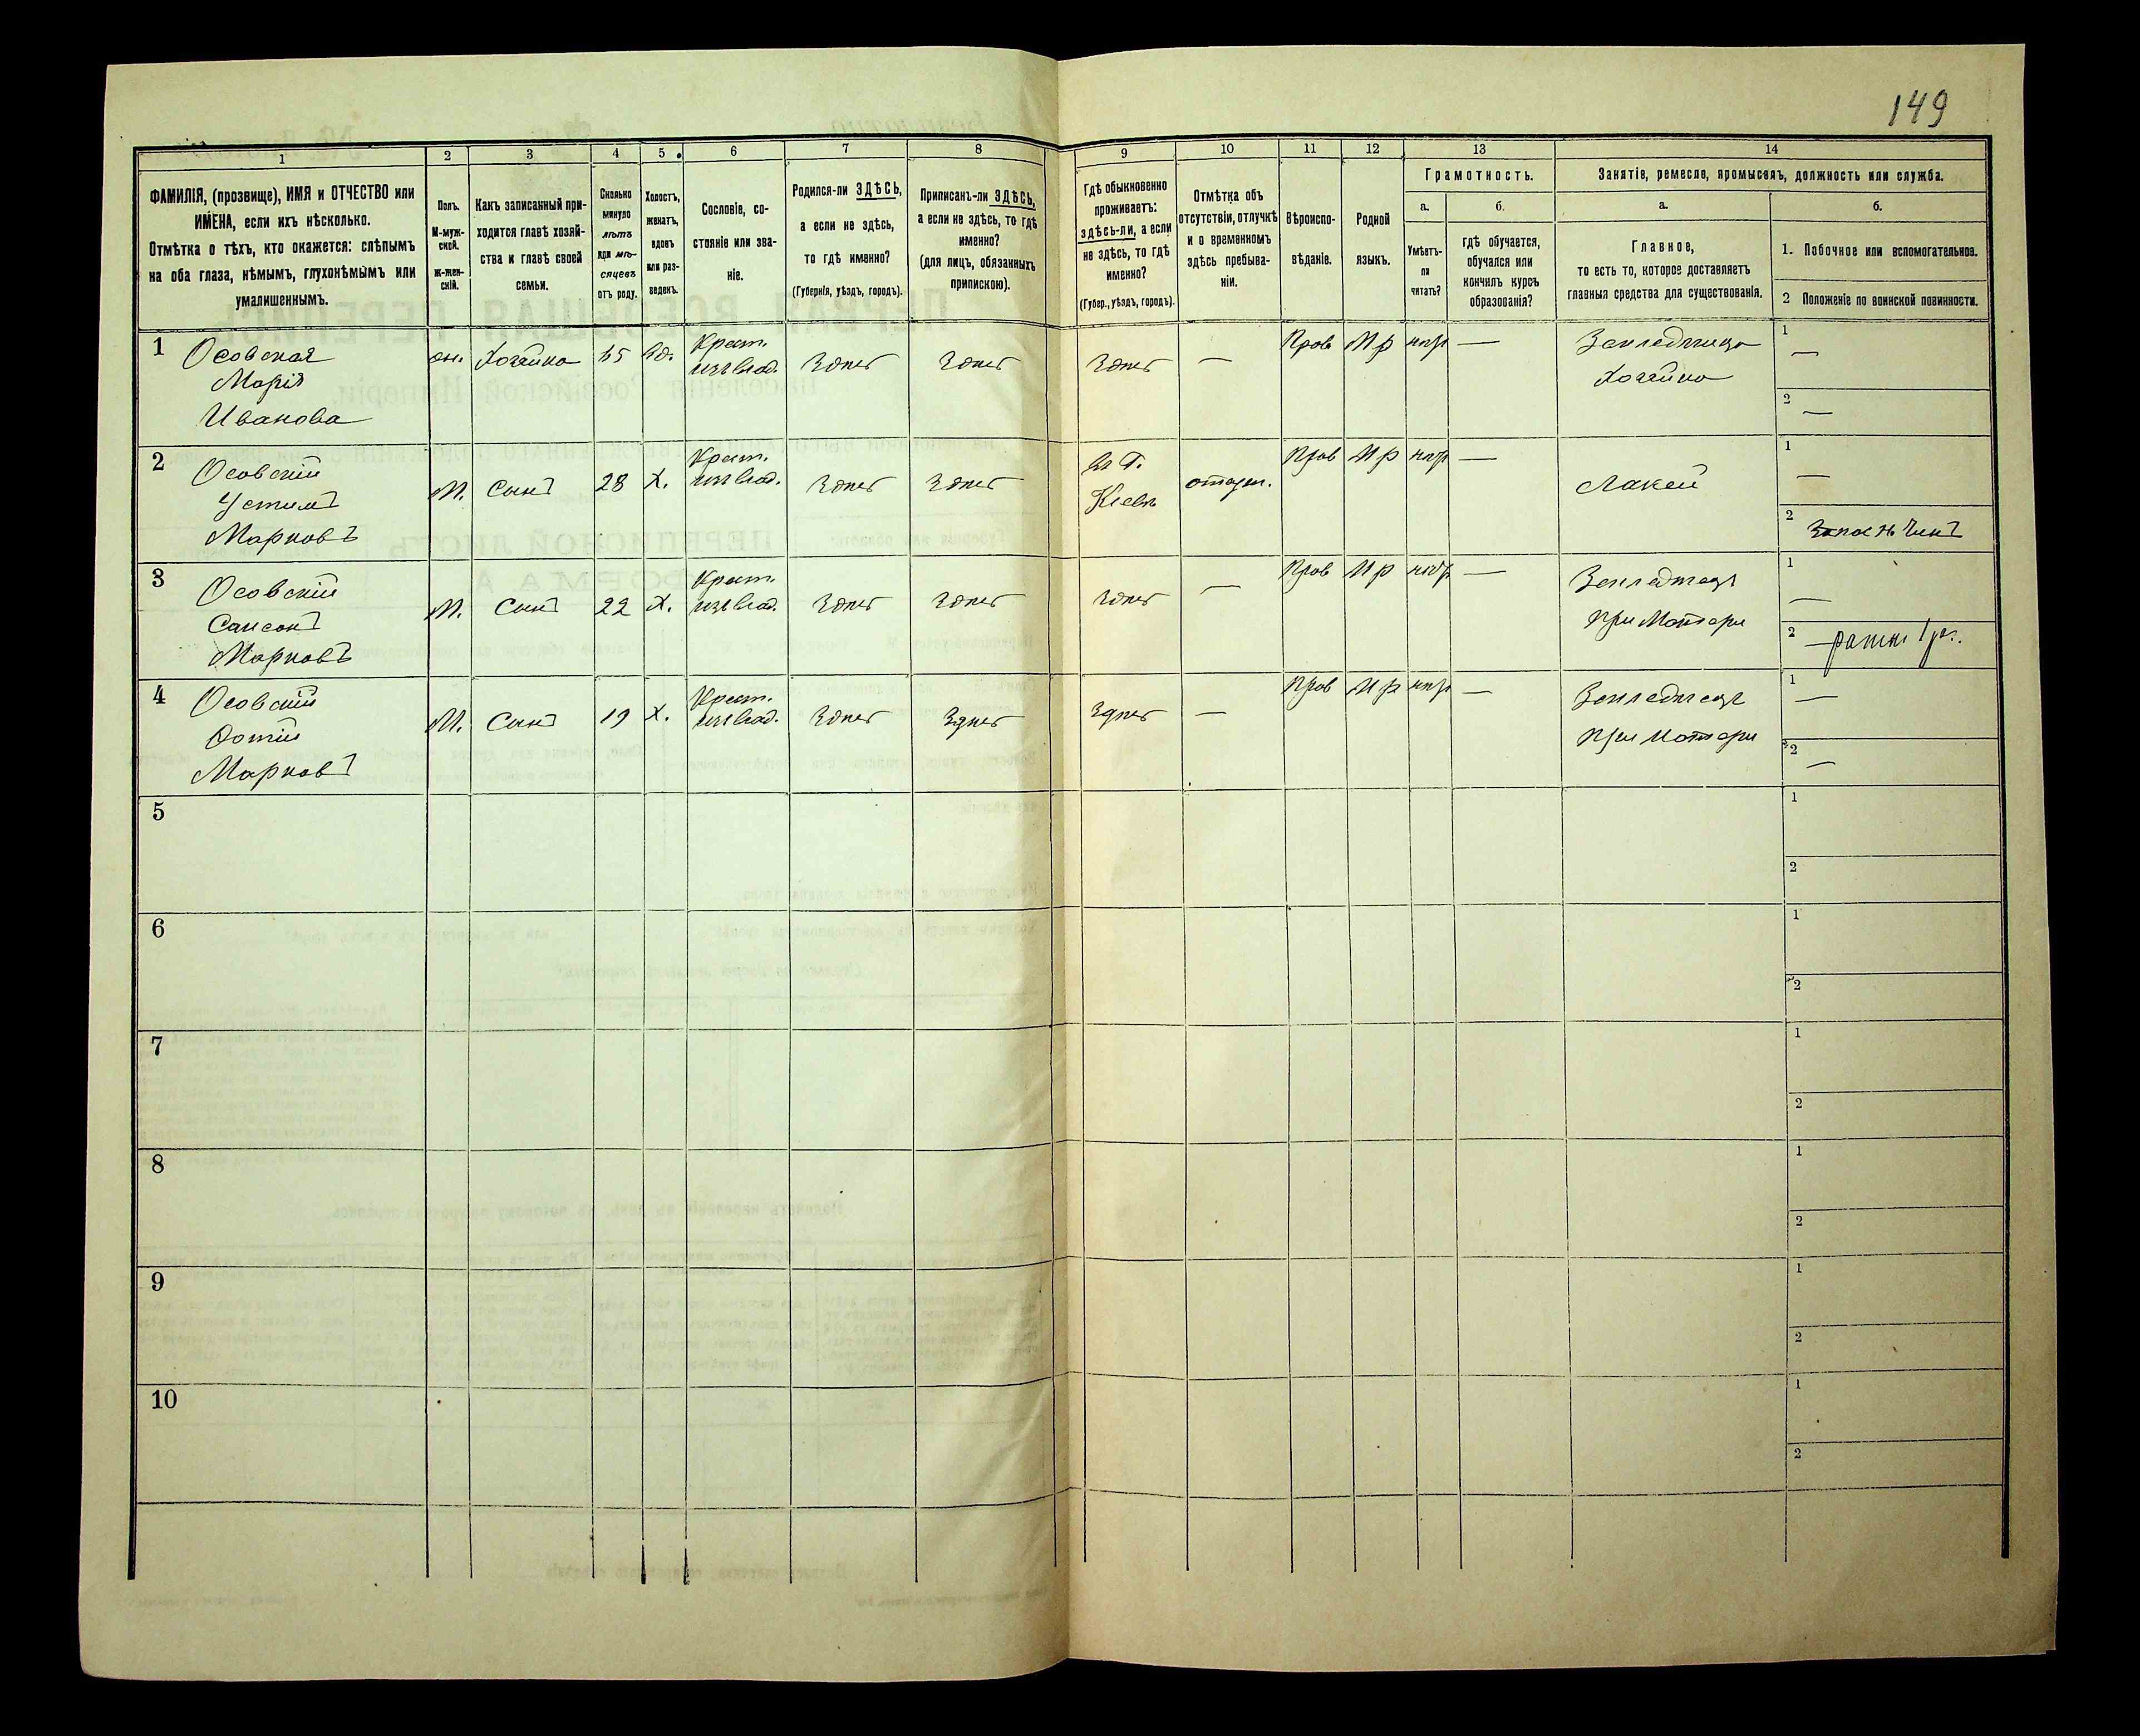 149
1 2 3 4 5 6 7 8 9 10 11 12 13 14
ФАМИЛІЯ, (прозвище), ИМЯ и ОТЧЕСТВО или
ИМЕНА, если ихъ нѣсколько.
Отмѣтка о тѣхъ, кто окажется: слѣпымъ
на оба глаза, нѣмымъ, глухонѣмымъ или
умалишеннымъ.
Полъ.
М-муж-
ской.
ж-жен-
скій.
Какъ записанный при-
ходится главѣ хозяй-
ства и главѣ своей
семьи.
Сколько
минуло
лѣтъ
или мѣ-
сяцевъ
отъ роду.
Холостъ,
женатъ,
вдовъ
или раз-
веденъ.
Сословіе, со-
стояніе или зва-
ніе.
Родился-ли ЗДѢСЬ,
а если не здѣсь,
то гдѣ именно?
(Губернія, уѣздъ, городъ).
Приписанъ-ли ЗДѢСЬ,
а если не здѣсь, то гдѣ
именно?
(для лицъ, обязанныхъ
припискою).
Гдѣ обыкновенно
проживаетъ:
здѣсь-ли, а если
не здѣсь, то гдѣ
именно?
(Губер., уѣздъ, городъ).
Отмѣтка объ
отсутствіи, отлучкѣ
и о временномъ
здѣсь пребыва-
ніи.
Вѣроиспо-
вѣданіе.
Родной
языкъ.
Грамотность.
а.
Умѣетъ-
ли
читать?
б.
гдѣ обучается,
обучался или
кончилъ курсъ
образованія?
Занятіе, ремесло, промыселъ, должность или служба.
а.
Главное,
то есть то, которое доставляетъ
главныя средства для существованія.
б.
1. Побочное или вспомогательное.
2 Положеніе по воинской повинности.
1 Осовская
Марія
Иванова
жн. Хозяйка вд. Крест.
изъ влад. здѣсь здѣсь здѣсь — Прав Мр нѣтъ — Земледѣлица
Хозяйка
1 —
2 —
2 Осовскій
Устимъ
Марковъ
М. Сынъ 28 х. Крест.
изъ влад. здѣсь здѣсь въ г.
Кіевѣ Прав Мр нѣтъ — Лакей
1 —
2 запасн. чинъ
3 Осовскій
Самсонъ
Марковъ
М. Сынъ 22 х. Крест.
изъ влад. здѣсь здѣсь здѣсь — Прав Мр нѣтъ — Земледѣлецъ
при Матери
1 —
2 ратн. 1 раз.
4 Осовскій
Фотій
Марковъ
М. Сынъ 19 х. Крест.
изъ влад. здѣсь здѣсь здѣсь — Прав Мр нѣтъ — Земледѣлецъ
при Матери
1 —
2 —
5 1
2
6 1
2
7 1
2
8 1
2
9 1
2
10 1
2